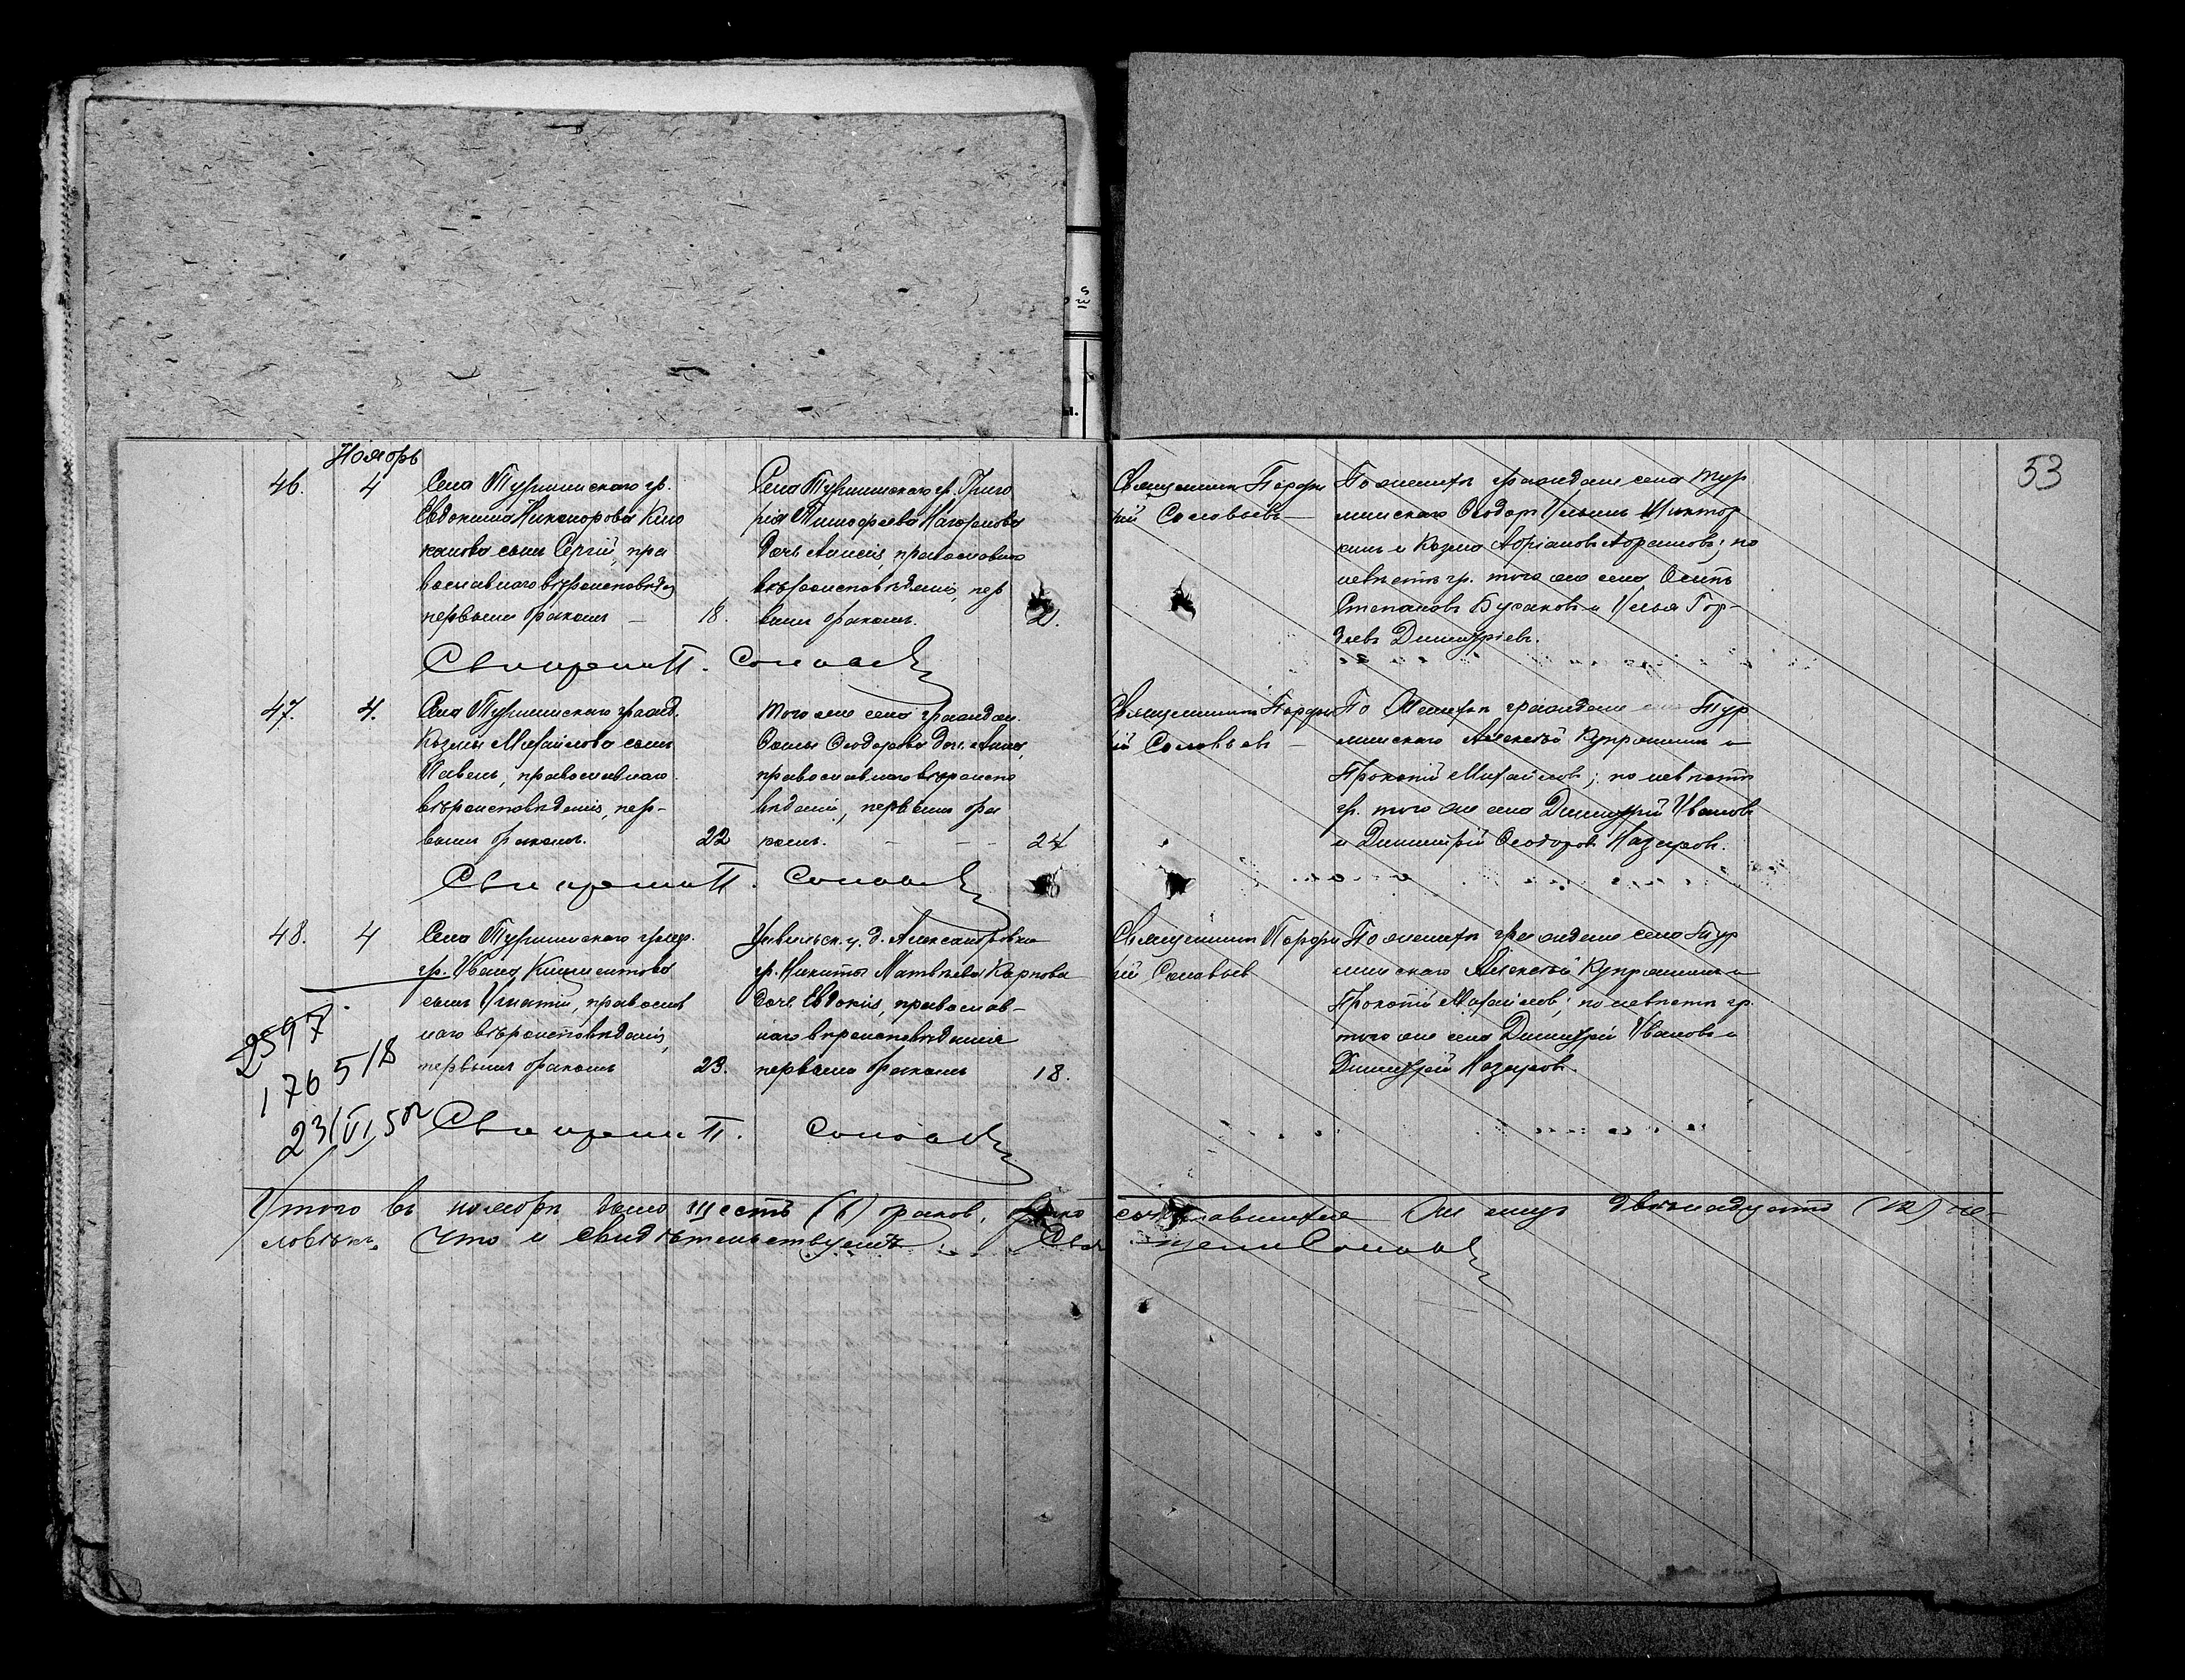 53
Ноябрь
46. 4 Села Турминскаго гр.
Евдокима Никанорова
сынъ Сергій, пра
вославнаго вѣроисповѣд.
первымъ бракомъ — 18.
Села Турминскаго гр. Григо
рія Тимофеева
дочь Анисія, православнаго
вѣроисповѣданія, пер
вымъ бракомъ. 21.
Священникъ Порфи
рій Соловьевъ —
По женихѣ граждане села Тур
минскаго Ѳеодоръ Ильинъ
и Козма Адріановъ Абрамовъ; по
невѣстѣ гр. того же села Осипъ
Степановъ Бусаковъ и Илья Гор-
дѣевъ Димитріевъ.
Священ П. Соловьев
47. 4. Села Турминскаго гражд.
Козмы Михайлова сынъ
Павелъ, православнаго
вѣроисповѣданія, пер-
вымъ бракомъ. 22
того же села граждан.
Ѳомы Ѳеодорова доч. Анна,
православнаго вѣроиспо
вѣданія, первымъ бра
комъ. — — — 24
Священникъ Порфи
рій Соловьевъ —
По женихѣ граждане Тур
минскаго Алексѣй Купряшинъ и
Прокопій Михайловъ; по невѣстѣ
гр. того же села Димитрій Ивановъ
и Димитрій Ѳеодоровъ Назаровъ.
Священ П. Соловьев
48. 4 Села Турминскаго
гр. Ивана Климентова
сынъ Игнатій, православ
наго вѣроисповѣданія,
первымъ бракомъ 23.
Цивильск. у. д. Александровки
гр. Никиты Матвѣева Карпова
доч. Евдокія, православ-
наго вѣроисповѣданія
первымъ бракомъ 18.
Священникъ Порфи
рій Соловьев
По женихѣ граждане села Тур
минскаго Алексѣй Купряшинъ и
Прокопій Михайлов; по невѣстѣ гр.
того же села Димитрій Ивановъ и
Димитрій Назаровъ.
2597
176 518
23/VI 50
Священ П. Соловьев
Итого въ ноябрѣ было шесть (6) браков,
сочетавшихся двѣнадцать (12) че-
ловѣкъ. Что и свидѣтельствуетъ Свя
щен Соловьев